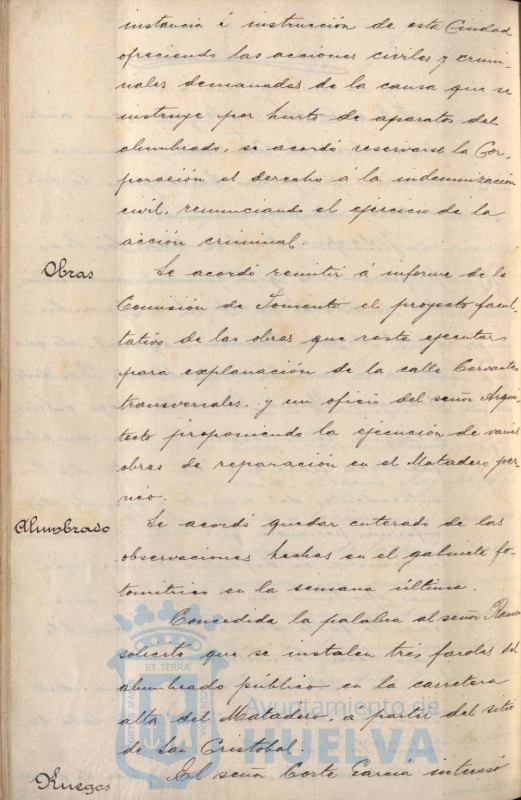 instancia é instrucción de esta Ciudad
ofreciendo las acciones civiles y crimi-
nales demanadas de la causa que se
instruye por hurto de aparatos del
alumbrado, se acordó reservarse la Cor-
poración el derecho á la indemnización
civil, renunciando el ejercicio de la
acción criminal.
Obras
Se acordó remitir á informe de la
Comisión de Fomento el proyecto facul-
tativo de las obras que resta ejecutar
para explanación de la calle Cervantes
transversales, y un oficio del señor Arqui-
tecto proponiendo la ejecución de varias
obras de reparación en el Matadero per
nico.
Alumbrado
Se acordó quedar enterado de las
observaciones hechas en el gabinete fo-
tométrico en la semana última.
Concedida la palabra al señor
solicitó que se instalen tres farolas del
alumbrado público en la carretera
alta del Matadero, a partir del sitio
de San Cristobal.
Ruegos
El señor Corte García interesó
ET TERRÆ
Ayuntamiento de
HUELVA